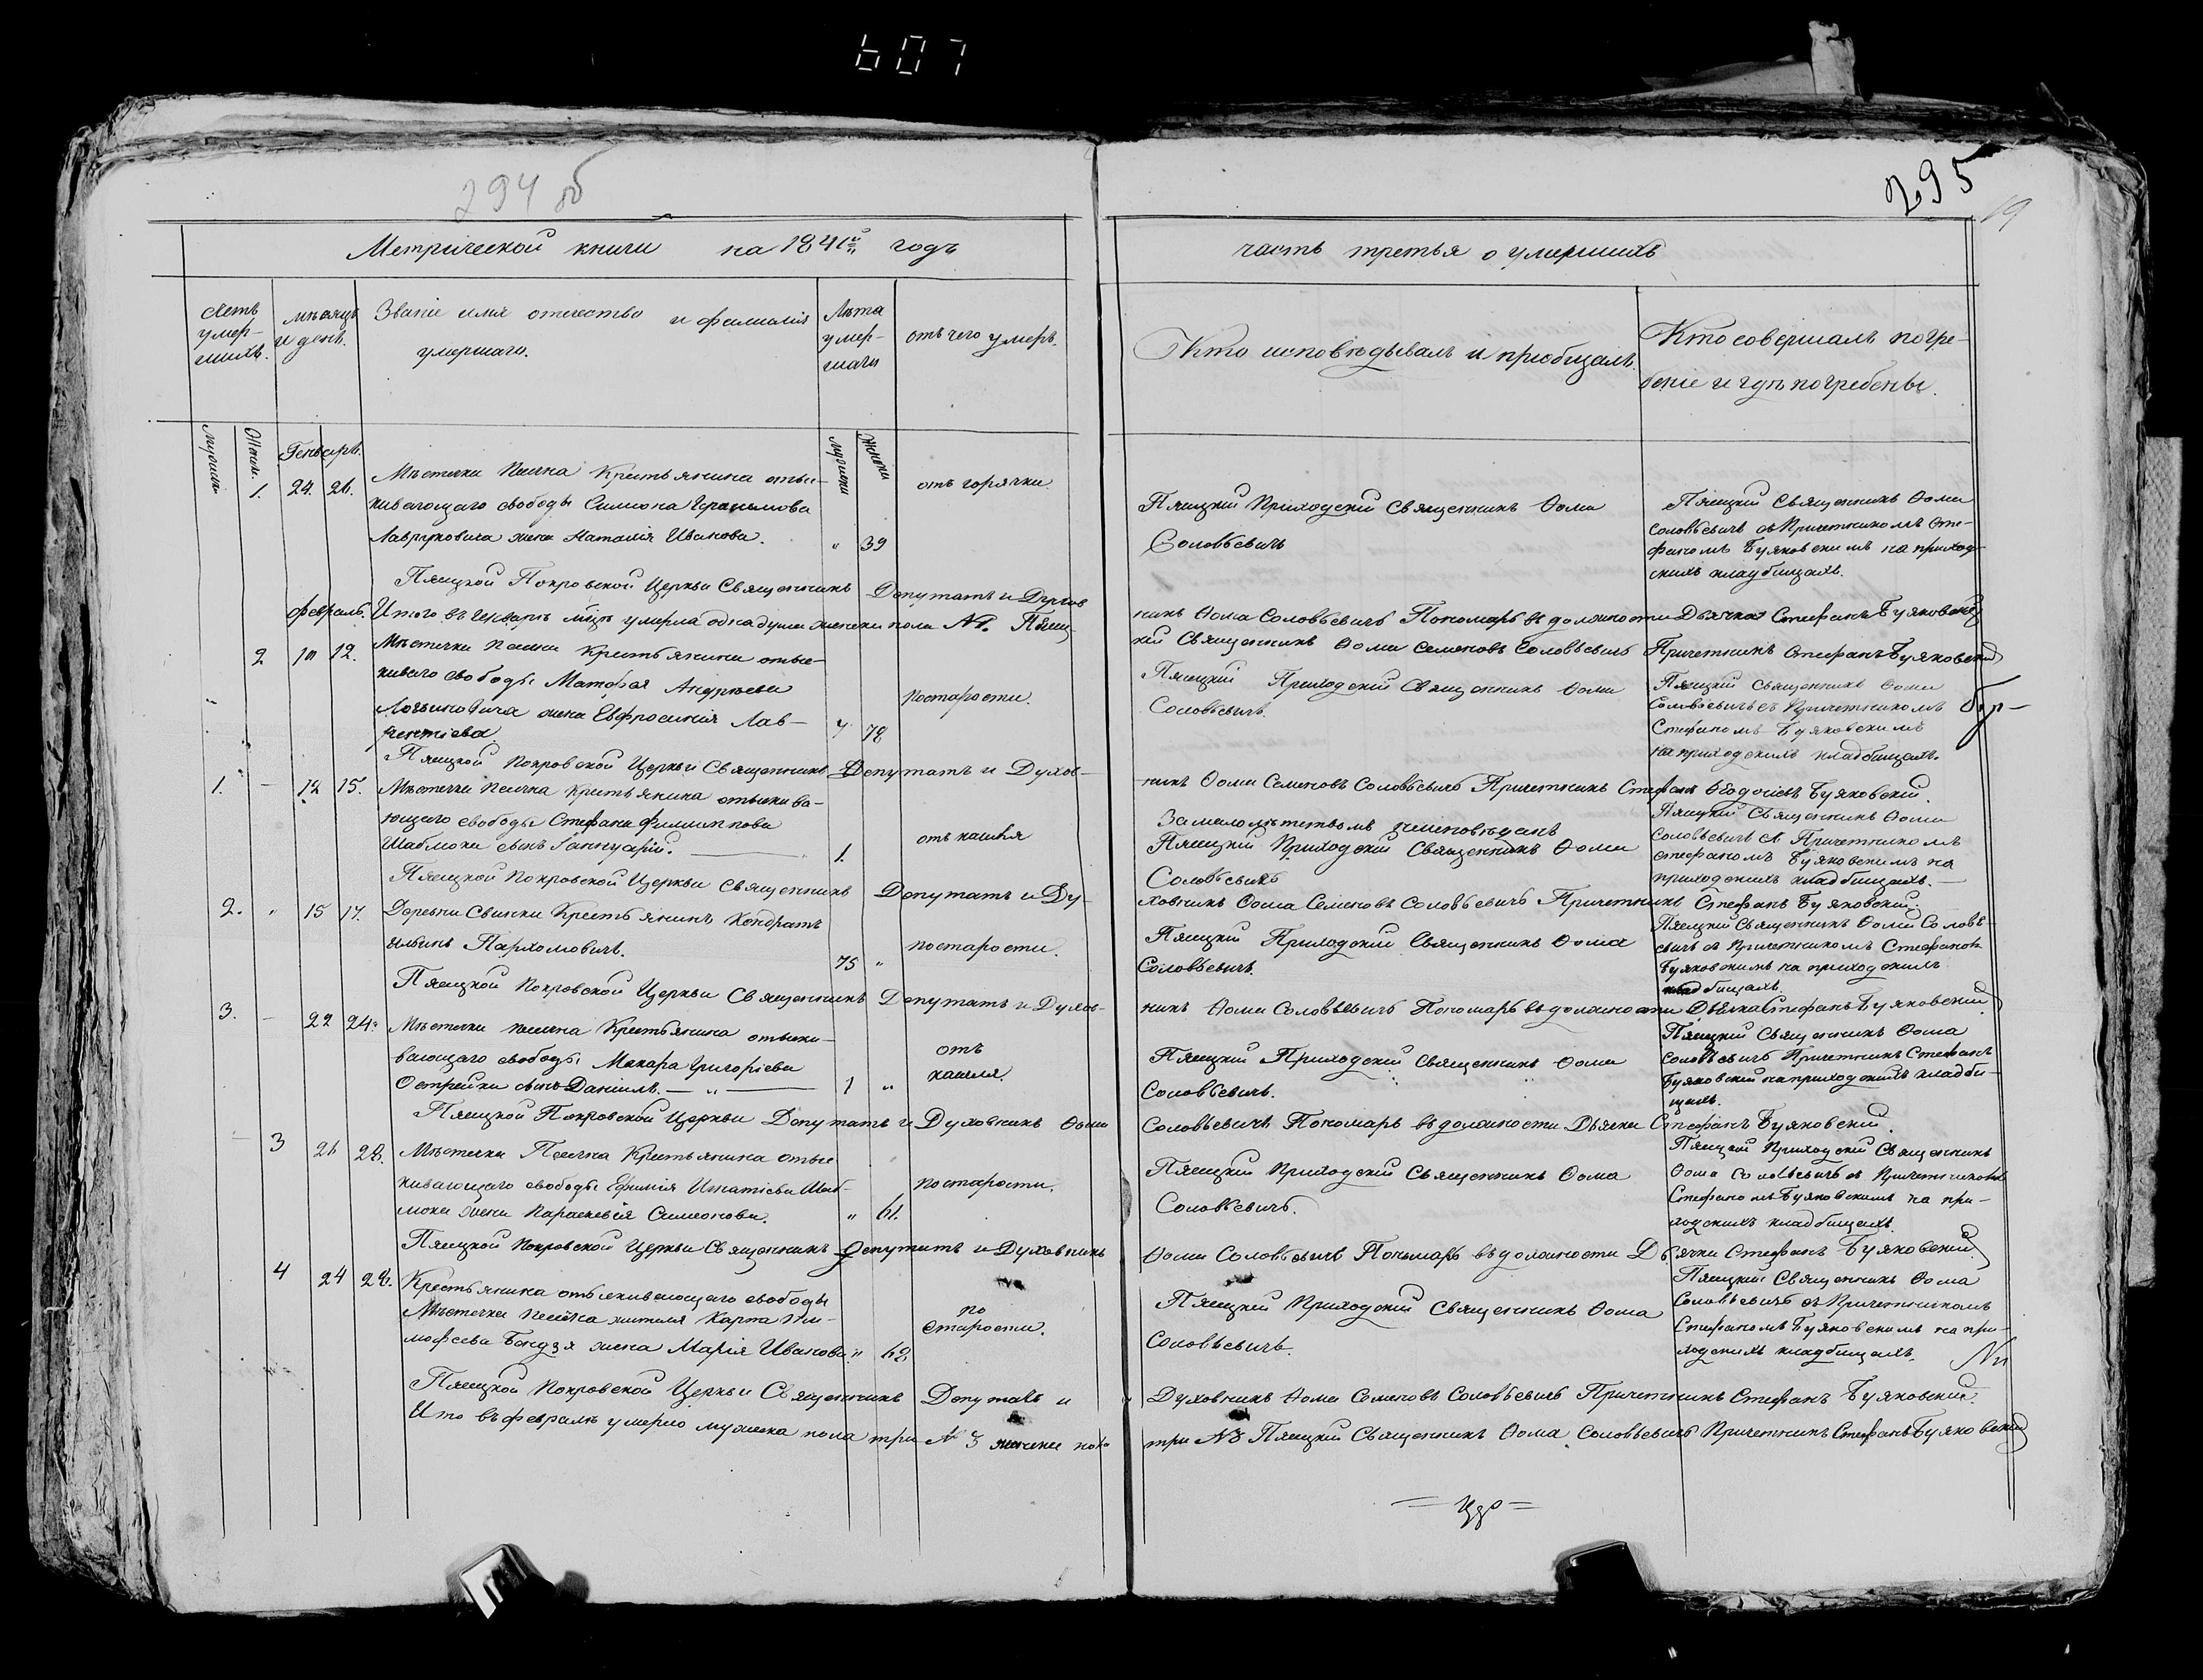 607
294 об
295
19
Метрической книги на 1841й годъ
часть третья о умершихъ
Счетъ умер-шихъ.
мѣсяцъ и день.
Званіе имя отечество и фамилія умершаго.
Лѣта умер-шаго
отъ чего умеръ.
Кто исповѣдывалъ и приобщалъ.
Кто совершалъ погре-
беніе и гдѣ погребены.
мужска
Женск.
мужска
женска
Генварь.
1. 24. 26.
Мѣстечка Песчка Крестьянина отыс-
кивающаго свободы Симиона
Лавриновича жена Наталія Иванова. " 39
отъ горячки.
Пяецкій Приходскій Священникъ Ѳома
Соловьевичъ
Пяецкій Священникъ Ѳома
Соловьевичъ съ Причетникомъ Сте-
фаномъ Буяковскимъ на приход-
скихъ кладбищахъ.
Пяецкой Покровской Церкви Священникъ Депутатъ и Духов
никъ Ѳома Соловьевичъ Пономарь въ должности Дьячка Стефанъ Буяковскій
февраль.
Итого въ Генварѣ мцѣ умерла одна душа женска пола №1. Пяец-
кій Священникъ Ѳома Семеновъ Соловьевичъ Причетникъ Стефанъ Буяковскій
2 10 12.
Мѣстечка Песчка Крестьянина отыс-
киваго свободы Матфея Андреева
Логвиновича жена Евфросинія Лав-
рентіева. " 78
по старости.
Пяецкій Приходскій Священникъ Ѳома
Соловьевичъ.
Пяецкій Священникъ Ѳома
Соловьевичъ съ Причетникомъ
Стефаномъ Буяковскимъ
на приходскихъ кладбищахъ.
Пяецкой Покровской Церкви Священникъ Депутатъ и Духов-
никъ Ѳома Семеновъ Соловьевичъ Причетникъ Стефанъ Ѳеодосіевъ Буяковскій.
1. - 12 15.
Мѣстечка Песчка Крестьянина отыскива-
ющаго свободы Стефана Филиппова
Шаблюка сынъ Іаннуарій. 1.
отъ кашля
За малолѣтствомъ неисповѣданъ
Пяецкій Приходскій Священникъ Ѳома
Соловьевичъ
Пяецкій Священникъ Ѳома
Соловьевичъ съ Причетникомъ
Стефаномъ Буяковскимъ на
приходскихъ кладбищахъ.
Пяецкой Покровской Церкви Священникъ Депутатъ и Ду-
ховникъ Ѳома Семеновъ Соловьевичъ Причетникъ Стефанъ Буяковскій.
2. " 15 17.
Деревни Свинки Крестьянинъ Кондратъ
Ильинъ Пархомовичъ. 75 "
по старости.
Пяецкій Приходскій Священникъ Ѳома
Соловьевичъ.
Пяецкій Священникъ Ѳома Соловь-
евичъ съ Причетникомъ Стефаномъ
Буяковскимъ на приходскихъ
кладбищахъ.
Пяецкой Покровской Церкви Священникъ Депутатъ и Духов-
никъ Ѳома Соловьевичъ Пономарь въ должности Дьячка Стефанъ Буяковскій
3. - 22 24.
Мѣстечка Песчка Крестьянина отыски-
вающаго свободы Макара Григоріева
Острейки сынъ Даніилъ. 1 "
отъ
кашля.
Пяецкій Приходскій Священникъ Ѳома
Соловьевичъ.
Пяецкій Священникъ Ѳома
Соловьевичъ Причетникъ Стефанъ
Буяковскій на приходскихъ кладби-
щахъ.
Пяецкой Покровской Церкви Депутатъ и Духовникъ Ѳома
Соловьевичъ Пономарь въ должности Дьячка Стефанъ Буяковскій.
3 26 28.
Мѣстечка Песчка Крестьянина отыс
кивающаго свободы Ефимія Игнатіева Шаб-
люка жена Параскевія Симеонова. " 61.
по старости.
Пяецкій Приходскій Священникъ Ѳома
Соловьевичъ.
Пяецкій Приходскій Священникъ
Ѳома Соловьевичъ съ Причетникомъ
Стефаномъ Буяковскимъ на при-
ходскихъ кладбищахъ.
Пяецкой Покровской Церкви Священникъ Депутатъ и Духовникъ
Ѳома Соловьевичъ Пономарь въ должности Дьячка Стефанъ Буяковскій
4 24 28.
Крестьянина отыскивающаго свободы
Мѣстечка Песчка жителя Карпа Ти-
мофеева Бондзя жена Марія Иванова " 68
по
старости.
Пяецкій Приходскій Священникъ Ѳома
Соловьевичъ.
Пяецкій Священникъ Ѳома
Соловьевичъ съ Причетникомъ
Стефаномъ Буяковскимъ на при-
ходскихъ кладбищахъ.
Пяецкой Покровской Церкви Священникъ Депутатъ и
Духовникъ Ѳома Семеновъ Соловьевичъ Причетникъ Стефанъ Буяковскій.
Ито въ февралѣ умерло мужска пола три № 3 женска пола
три №3 Пяецкій Священникъ Ѳома Соловьевичъ Причетникъ Стефанъ Буяковскій